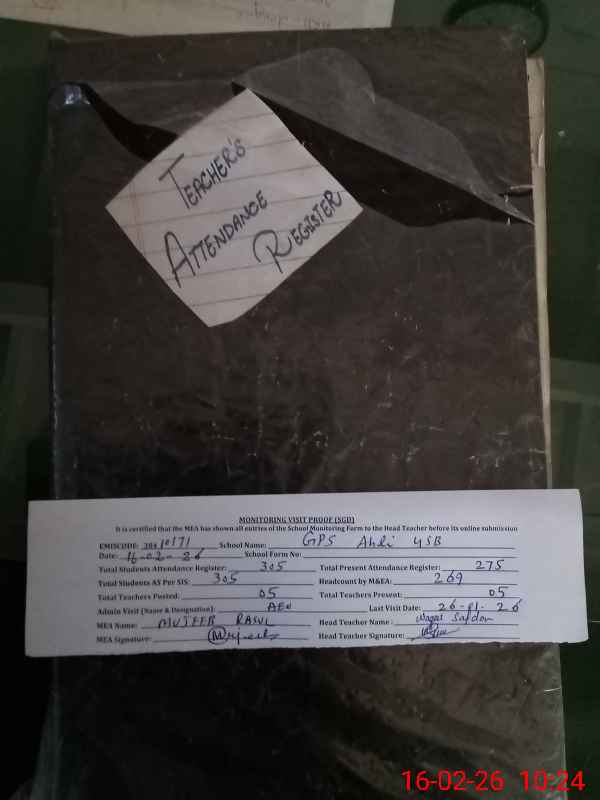 TEACHER'S
ATTENDANCE
REGISTER
MONITORING VISIT PROOF (SGD)
It is certified that the MEA has shown all entries of the School Monitoring Form to the Head Teacher before its online submission
EMISCODE: 384 10171 School Name: GPS Ahli 4SB
Date: 16-02-26 School Form No:
Total Students Attendance Register: 305 Total Present Attendance Register: 275
Total Students AS Per SIS: 305 Headcount by M&EA: 269
Total Teachers Posted: 05 Total Teachers Present: 05
Admin Visit (Name & Designation): AEO Last Visit Date: 26-01-26
MEA Name: MUJEEB RASUL Head Teacher Name: Waqas Safdar
MEA Signature: Head Teacher Signature:
16-02-26 10:24